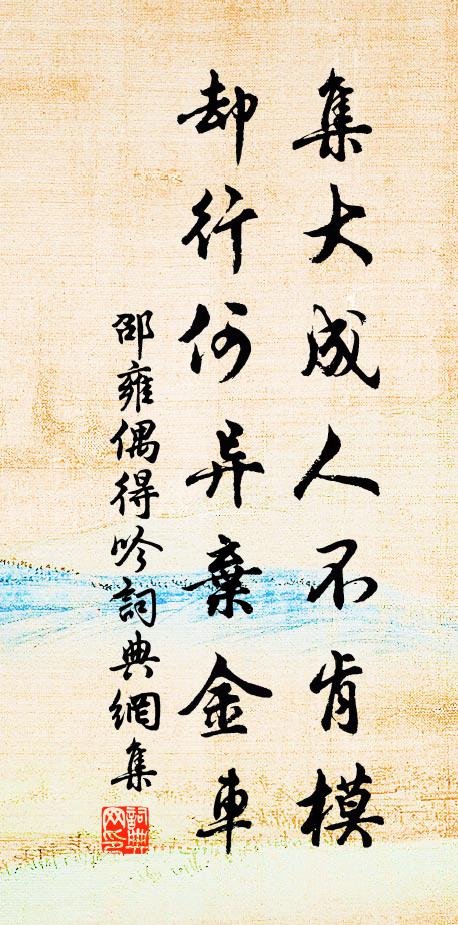 集大成人不肯模
却行何异棄金車
邵雍偶得吟詞典網集